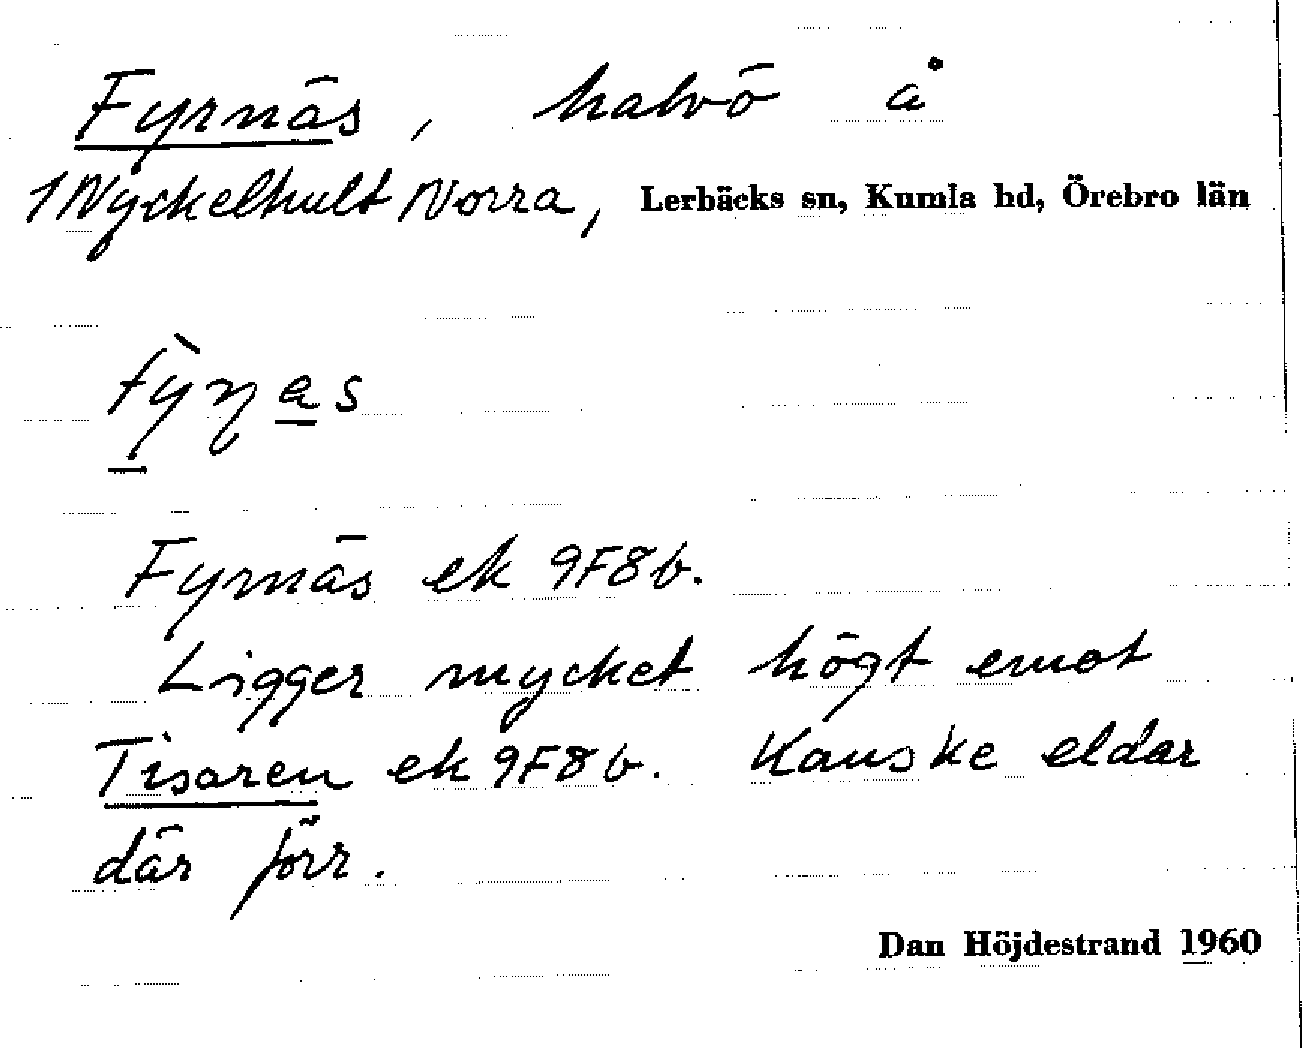 Fyrnäs, halvö å
1 Nyckelhult Norra, Lerbäcks sn, Kumla hd, Örebro län
fỳɳas
Fyrnäs ek 9F8b.
Ligger mycket högt emot
Tisaren ek 9F8b. Kanske eldar
där förr.
Dan Höjdestrand 1960